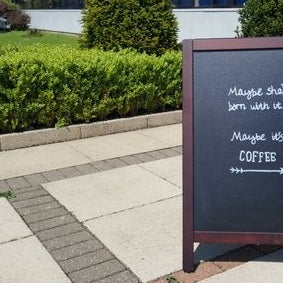 Maybe sh
born with it.
Maybe it's
COFFEE